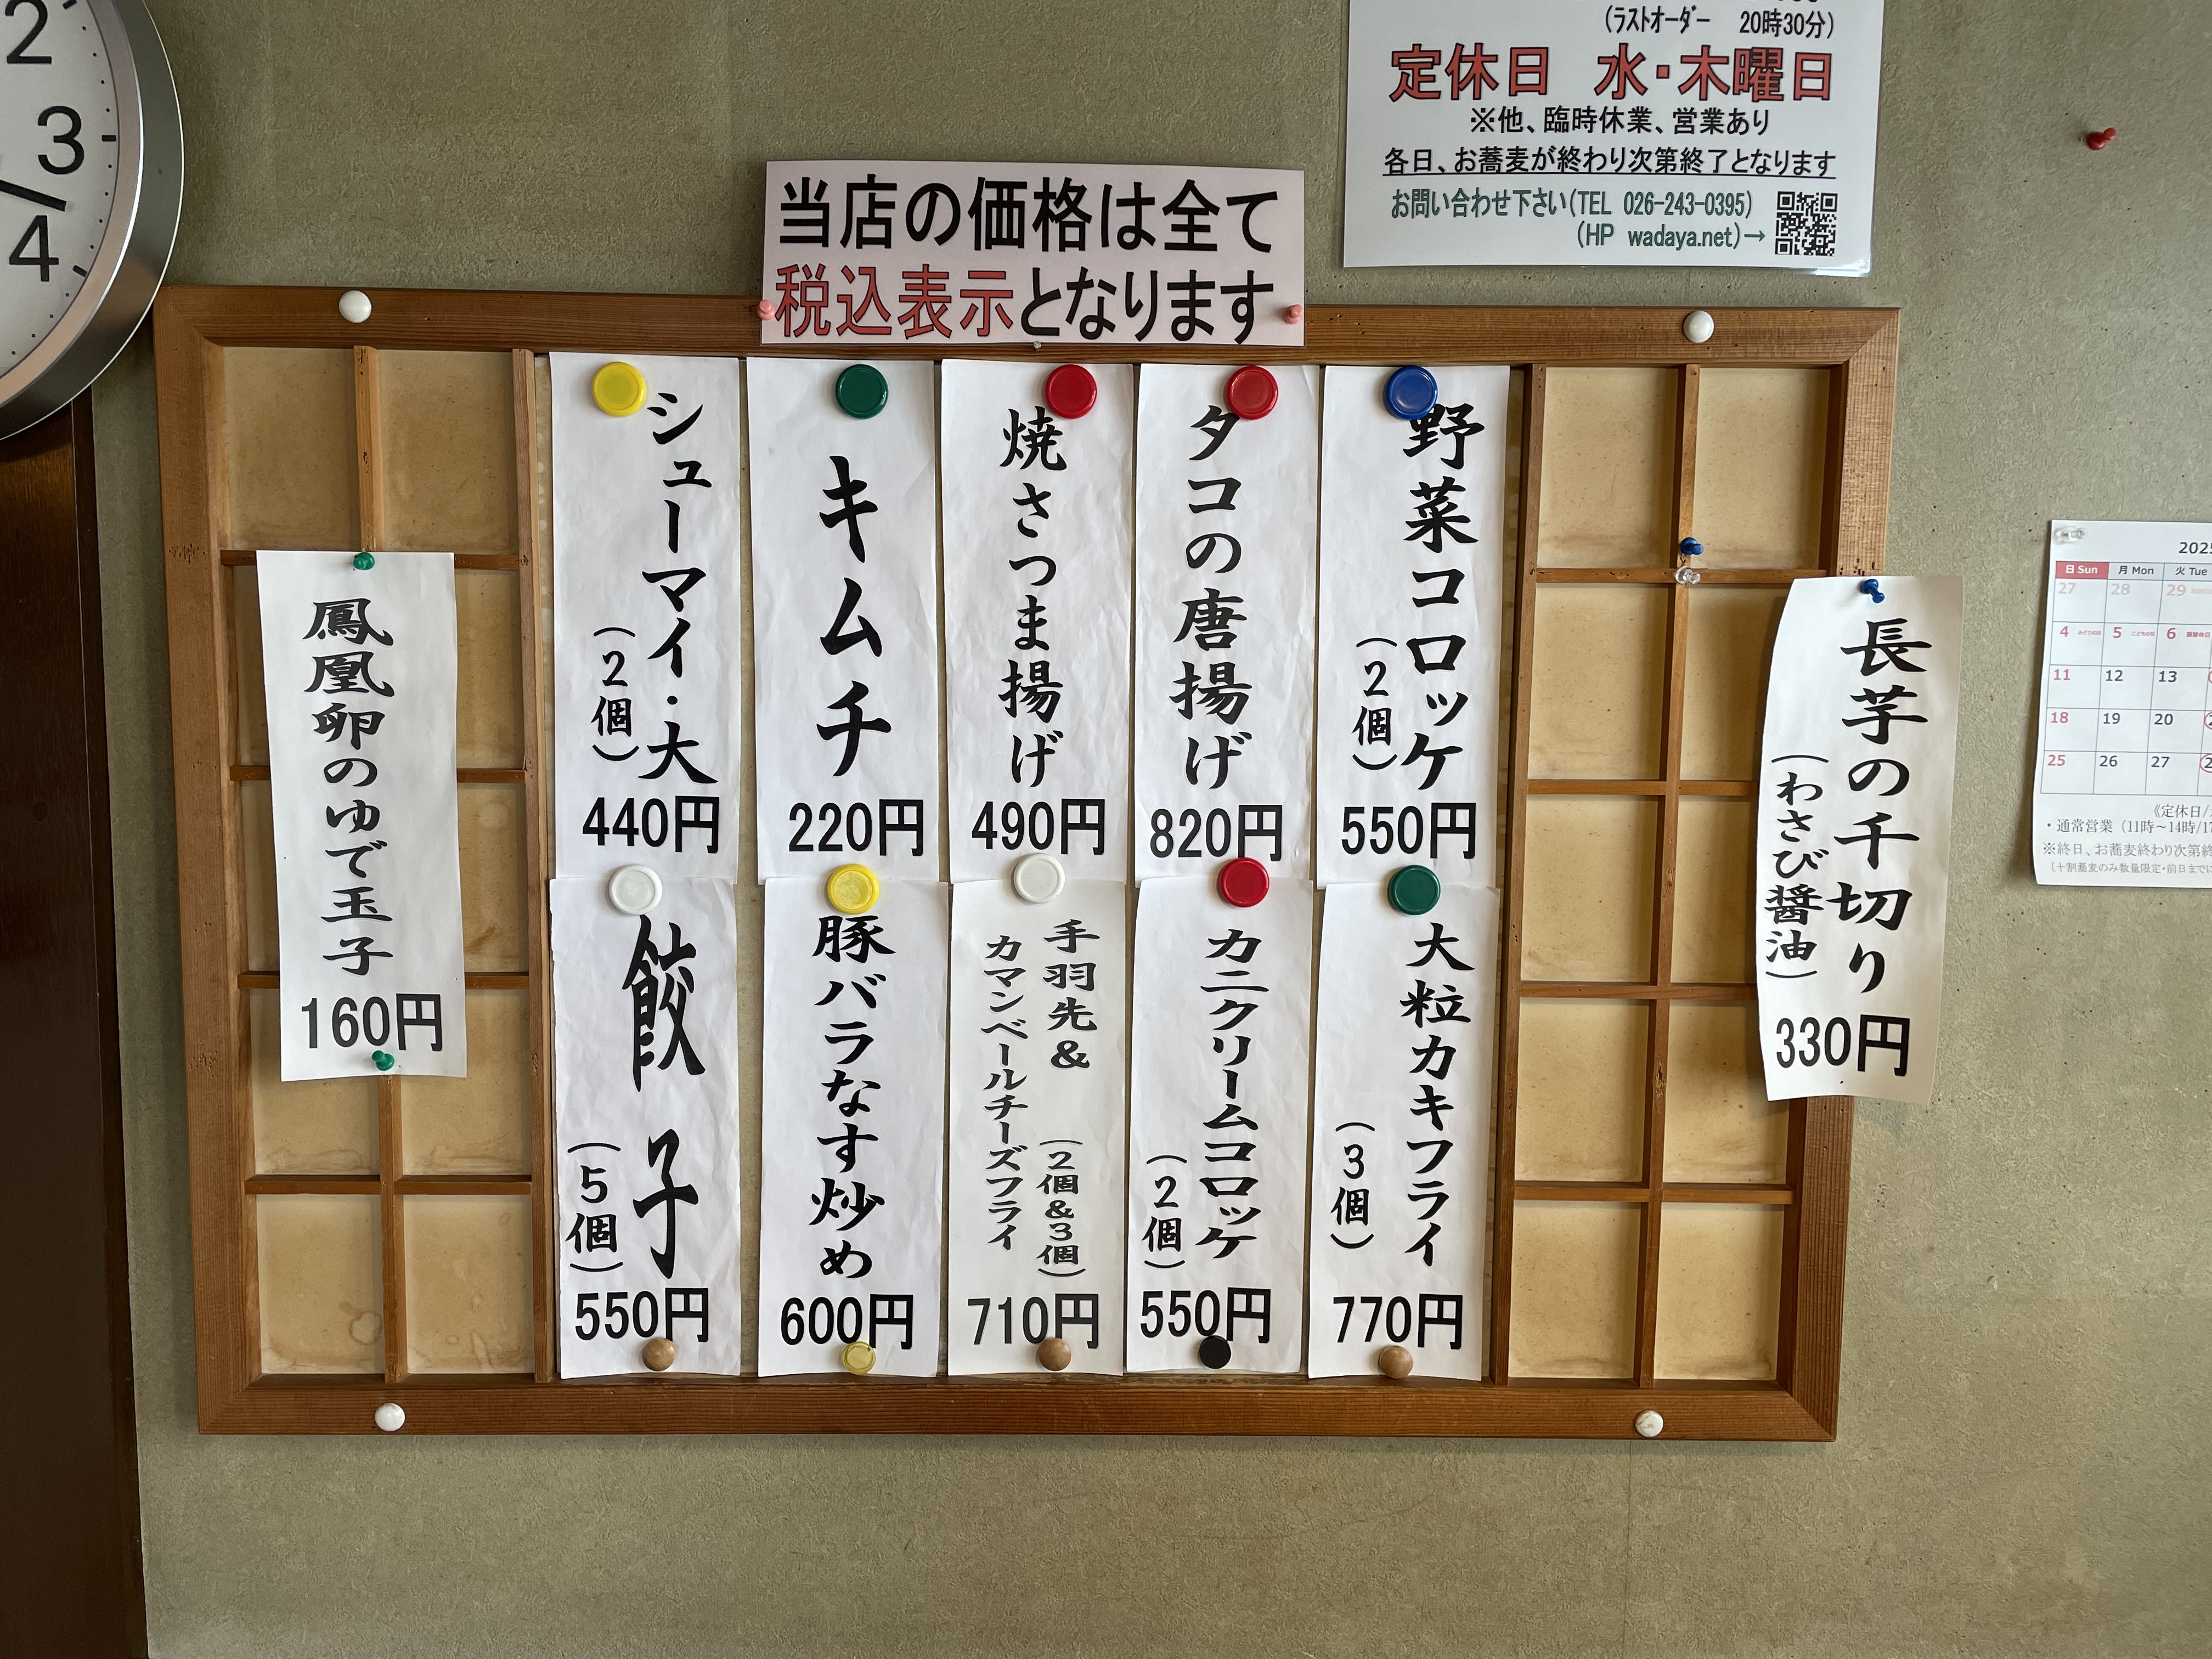 (ラストオーダー 20時30分)
定休日 水・木曜日
※他、臨時休業、営業あり
各日、お蕎麦が終わり次第終了となります
お問い合わせ下さい(TEL 026-243-0395)
(HP wadaya.net)→
当店の価格は全て
税込表示となります
2
3
4
長芋の千切り
(わさび醤油)
330円
野菜コロッケ
(2個)
550円
タコの唐揚げ
820円
焼さつま揚げ
490円
キムチ
220円
シューマイ・大
(2個)
440円
大粒カキフライ
(3個)
770円
カニクリームコロッケ
(2個)
550円
手羽先&
カマンベールチーズフライ
(2個&3個)
710円
豚バラなす炒め
600円
餃子
(5個)
550円
鳳凰卵のゆで玉子
160円
2025
日 Sun 月 Mon 火 Tue
27 28 29
4 みどりの日 5 こどもの日 6 振替休日
11 12 13
18 19 20
25 26 27
《定休日/
・通常営業(11時～14時/17
※終日、お蕎麦終わり次第終
[十割蕎麦のみ数量限定・前日までに